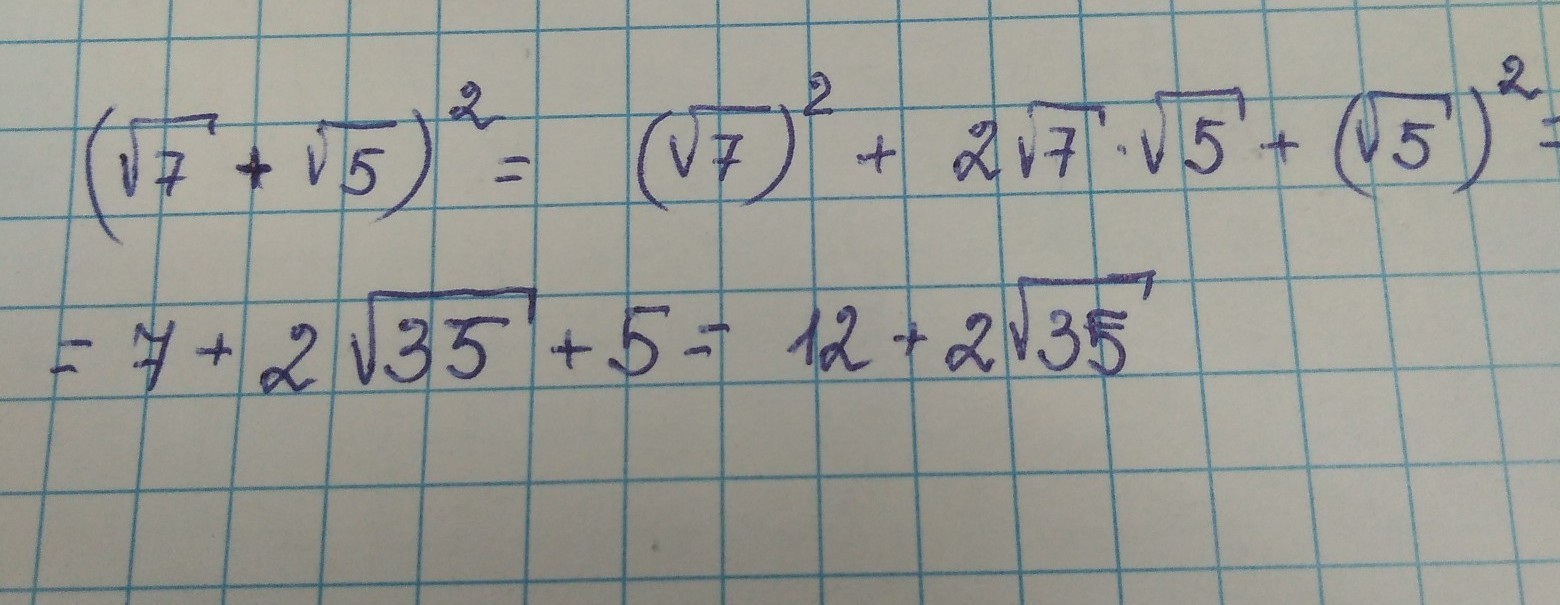 (√7 + √5)² = (√7)² + 2√7 · √5 + (√5)² =
= 7 + 2√35 + 5 = 12 + 2√35